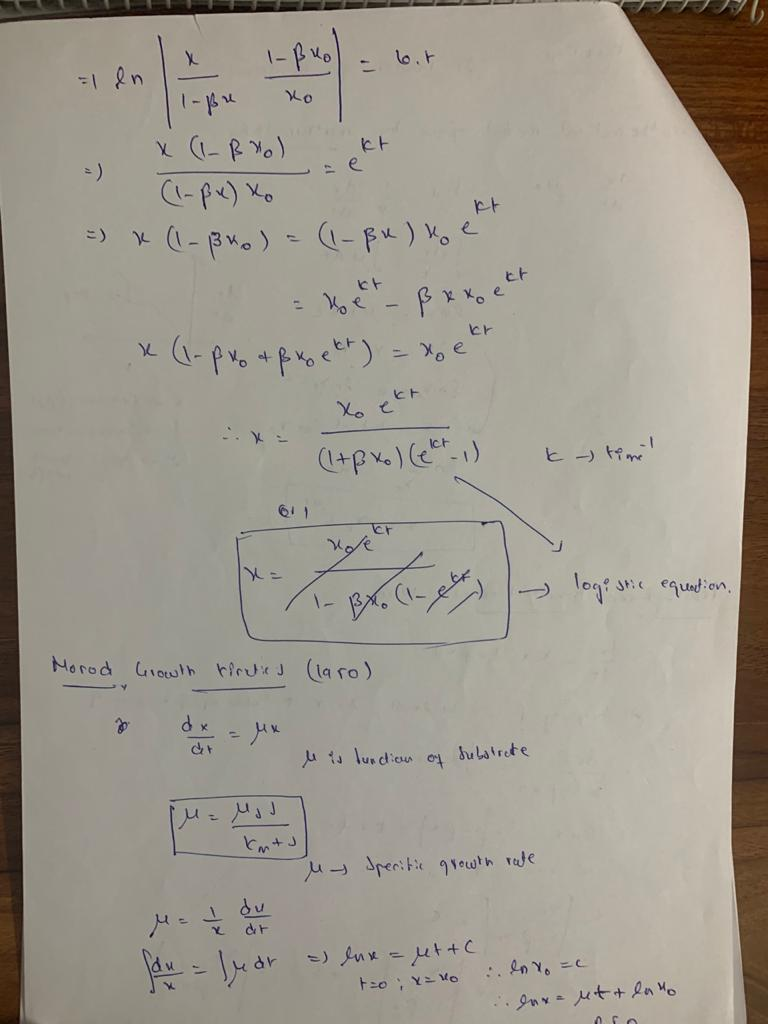 =) ln | x / (1-βx) (1-βx₀) / x₀ | = k.t
=) x (1-βx₀) / (1-βx) x₀ = e^kt
=) x (1-βx₀) = (1-βx) x₀ e^kt
= x₀ e^kt - β x x₀ e^kt
x (1-βx₀ + βx₀ e^kt) = x₀ e^kt
∴ x = x₀ e^kt / (1+βx₀)(e^kt -1) k → time⁻¹
x = x₀ e^kt / 1- βx₀ (1- e^kt) → logistic equation.
Monod Growth kinetics
dx/dt = μx
μ is function of substrate
μ = μₛ s / Kₘ+s
μ → specific growth rate
μ = 1/x dx/dt
∫dx/x = ∫μ dt =) lnx = μt + C
t=0 ; x=x₀ ∴ ln x₀ = c
∴ lnx = μt + ln x₀